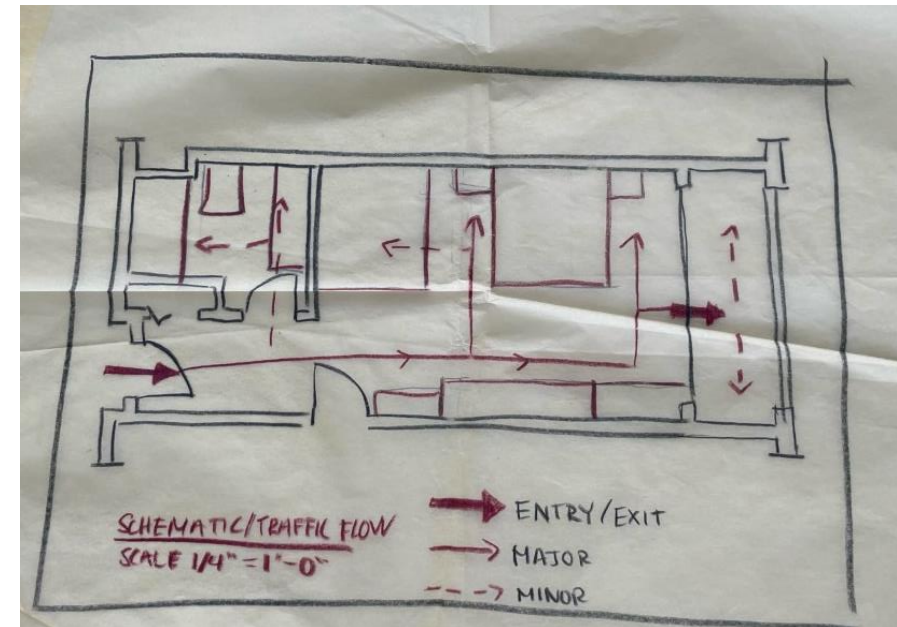 SCHEMATIC/TRAFFIC FLOW
SCALE 1/4" = 1'-0"
ENTRY/EXIT
MAJOR
MINOR